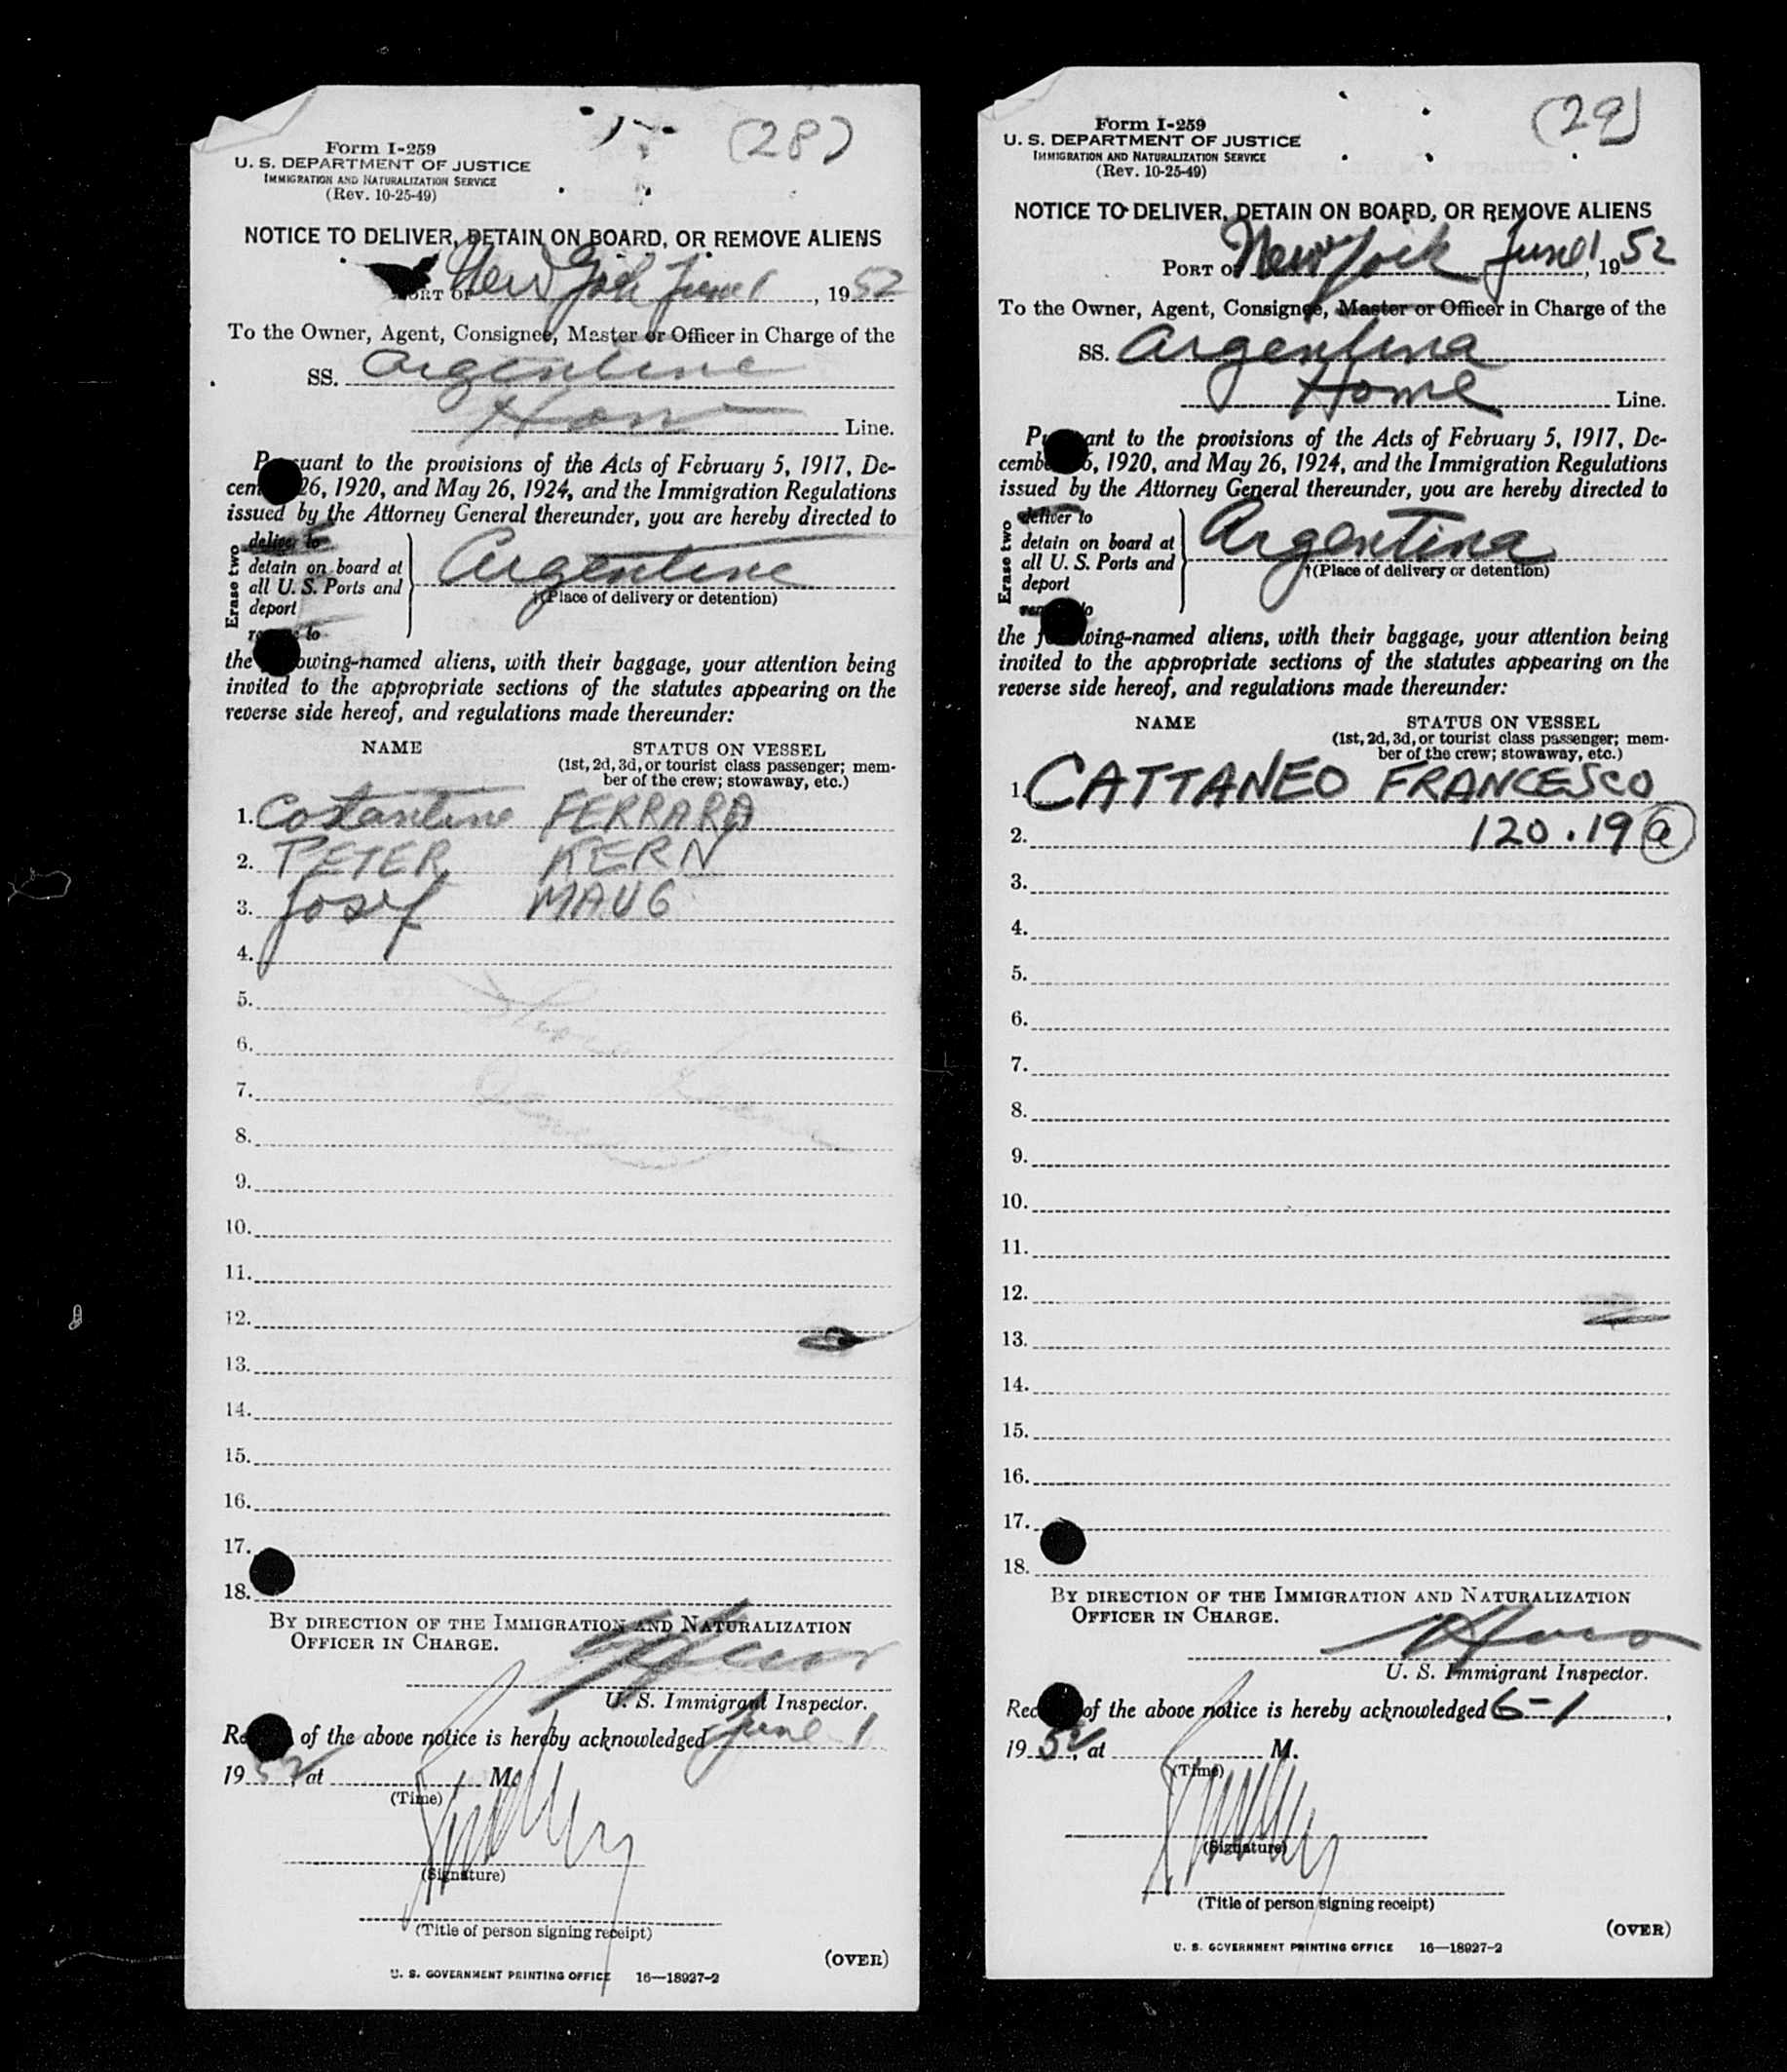 (28)
Form I-259
U. S. DEPARTMENT OF JUSTICE
IMMIGRATION AND NATURALIZATION SERVICE
(Rev. 10-25-49)
NOTICE TO DELIVER, DETAIN ON BOARD, OR REMOVE ALIENS
PORT OF New York June 1, 1952
To the Owner, Agent, Consignee, Master or Officer in Charge of the
SS. Argentine
Line.
Pursuant to the provisions of the Acts of February 5, 1917, De-
cember 26, 1920, and May 26, 1924, and the Immigration Regulations
issued by the Attorney General thereunder, you are hereby directed to
Erase two
deliver to
detain on board at
all U. S. Ports and
deport
remove to
Argentine
†(Place of delivery or detention)
the following-named aliens, with their baggage, your attention being
invited to the appropriate sections of the statutes appearing on the
reverse side hereof, and regulations made thereunder:
NAME STATUS ON VESSEL
(1st, 2d, 3d, or tourist class passenger; mem-
ber of the crew; stowaway, etc.)
1. Costantino FERRARA
2. PETER KERN
3. Josef MAUG
4.
5.
6.
7.
8.
9.
10.
11.
12.
13.
14.
15.
16.
17.
18.
BY DIRECTION OF THE IMMIGRATION AND NATURALIZATION
OFFICER IN CHARGE.
U. S. Immigrant Inspector.
Receipt of the above notice is hereby acknowledged June 1
1952, at M.
(Time)
(Signature)
(Title of person signing receipt)
(OVER)
U. S. GOVERNMENT PRINTING OFFICE 16—18927-2
(29)
Form I-259
U. S. DEPARTMENT OF JUSTICE
IMMIGRATION AND NATURALIZATION SERVICE
(Rev. 10-25-49)
NOTICE TO DELIVER, DETAIN ON BOARD, OR REMOVE ALIENS
PORT OF New York June 1, 1952
To the Owner, Agent, Consignee, Master or Officer in Charge of the
SS. Argentina
Home Line.
Pursuant to the provisions of the Acts of February 5, 1917, De-
cember 26, 1920, and May 26, 1924, and the Immigration Regulations
issued by the Attorney General thereunder, you are hereby directed to
Erase two
deliver to
detain on board at
all U. S. Ports and
deport
remove to
Argentina
†(Place of delivery or detention)
the following-named aliens, with their baggage, your attention being
invited to the appropriate sections of the statutes appearing on the
reverse side hereof, and regulations made thereunder:
NAME STATUS ON VESSEL
(1st, 2d, 3d, or tourist class passenger; mem-
ber of the crew; stowaway, etc.)
1. CATTANEO FRANCESCO
2. 120.19 a
3.
4.
5.
6.
7.
8.
9.
10.
11.
12.
13.
14.
15.
16.
17.
18.
BY DIRECTION OF THE IMMIGRATION AND NATURALIZATION
OFFICER IN CHARGE.
U. S. Immigrant Inspector.
Receipt of the above notice is hereby acknowledged 6-1,
1952, at M.
(Time)
(Signature)
(Title of person signing receipt)
(OVER)
U. S. GOVERNMENT PRINTING OFFICE 16—18927-2